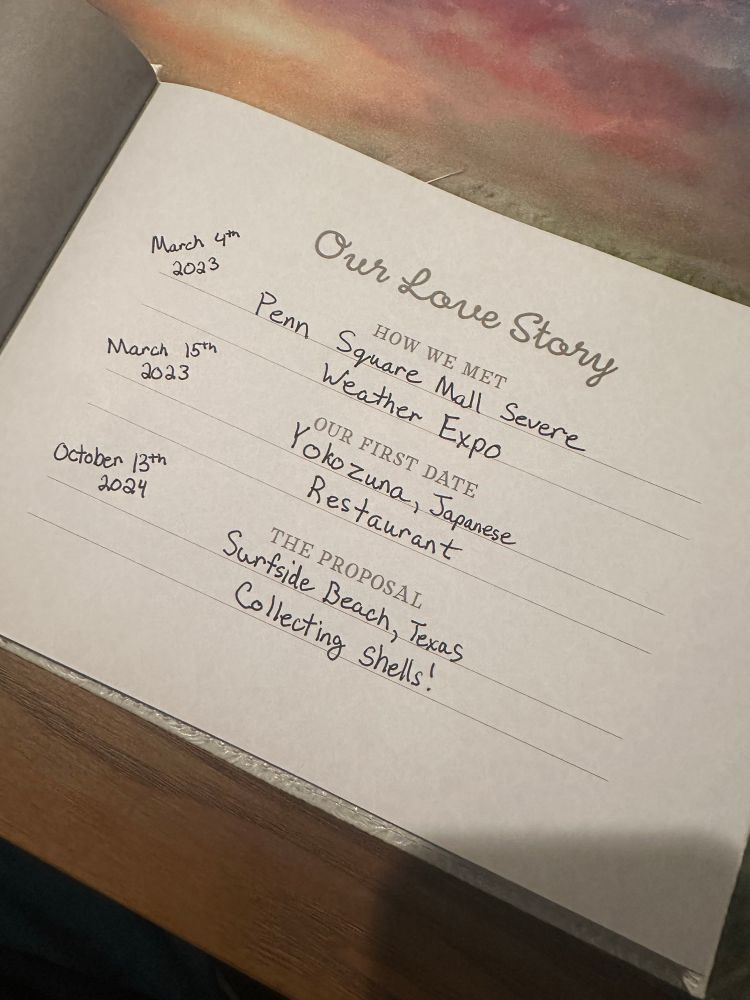 Our Love Story
March 4th
2023
HOW WE MET
Penn Square Mall Severe
Weather Expo
March 15th
2023
OUR FIRST DATE
Yokozuna, Japanese
Restaurant
October 13th
2024
THE PROPOSAL
Surfside Beach, Texas
Collecting Shells!